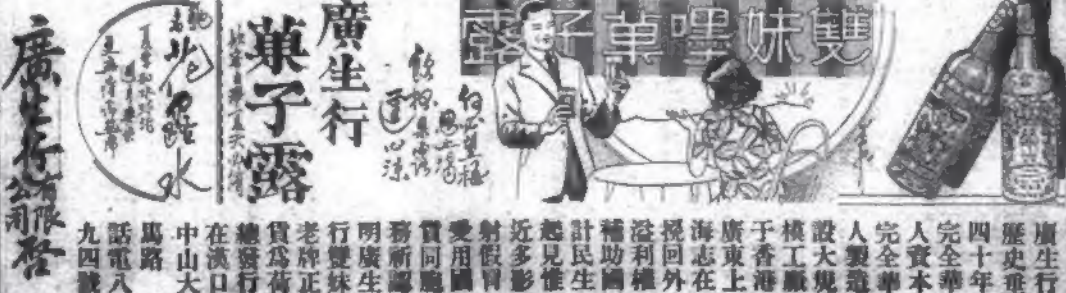 雙妹嚜菓子露
廣生行
菓子露
花露水
廣生行有限公司啓
廣生行
歷史垂
四十年
完全華
人資本
完全華
人製造
設大規
模工廠
于香港
廣東上
海志在
挽回外
溢利權
補助國
計民生
起見惟
近多影
射假冒
愛用國
貨同胞
務祈認
明廣生
行雙妹
老牌正
貨爲荷
總發行
在漢口
中山大
馬路
話電八
九四號